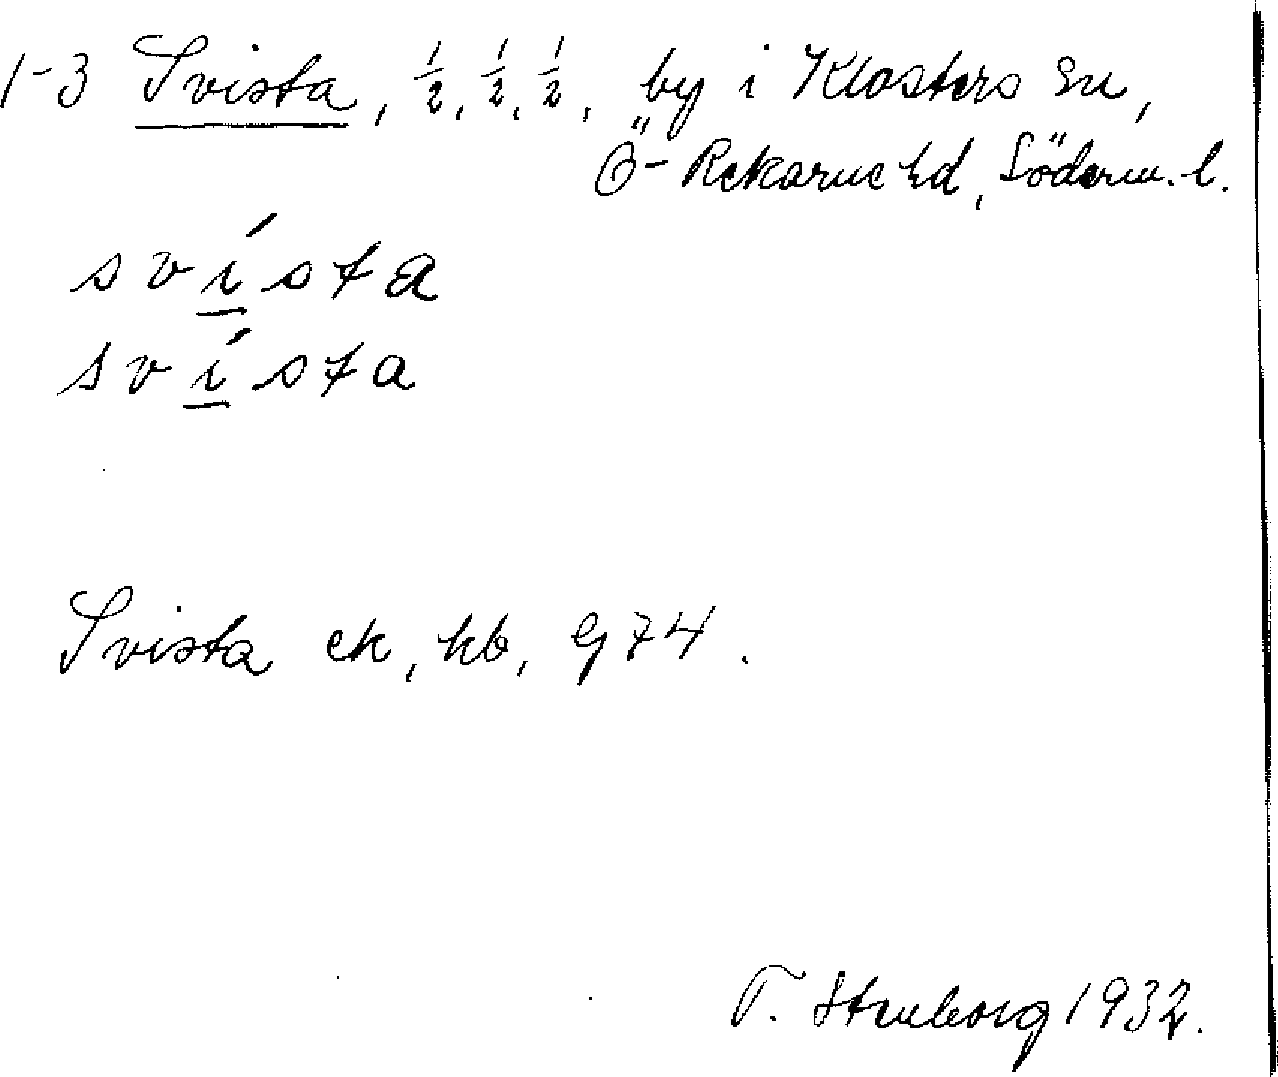 1-3 Svista, ½, ½, ½, by i Klosters sn,
Ö-Rekarne hd, Söderm. l.
svísta
svísta
Svista ek, kb, G 74.
T. Stenborg 1932.